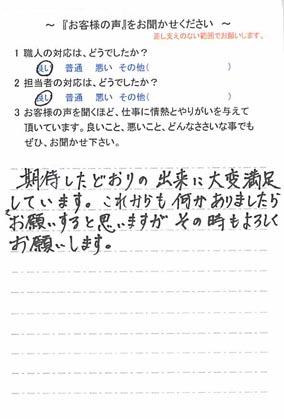 ～ 『お客様の声』をお聞かせください ～
差し支えのない範囲でお願いします。
1 職人の対応は、どうでしたか？
良い 普通 悪い その他( )
2 担当者の対応は、どうでしたか？
良い 普通 悪い その他( )
3 お客様の声を聞くほど、仕事に情熱とやりがいを与えて
頂いています。良いこと、悪いこと、どんなささいな事でも
ぜひ、お聞かせ下さい。
期待したどおりの出来に大変満足
しています。これからも何かありましたら
お願いすると思いますがその時もよろしく
お願いします。